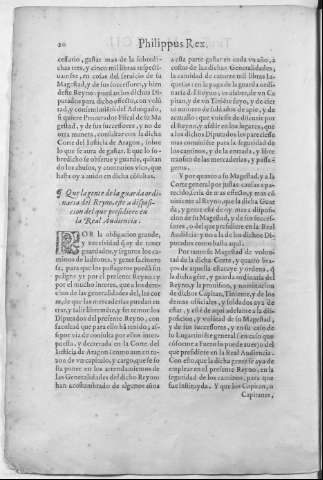 20 Philippus Rex.
cessario, gastar mas de la sobredi-
chas tres, y cinco mil libras respecti-
uamente, en cosas del seruicio de su
Magestad, y de sus successores, y bien
deste Reyno: pueda los dichos Di-
putados para dicho effecto, con volū
tad, y consentimiento del Aduogado,
si quiere Procurador Fiscal de su Ma
gestad, y de sus successores, y no de
otra manera, consultar con la dicha
Corte del Iusticia de Aragon, sobre
lo que se aura de gastar. E que lo so-
bredicho se obserue y guarde, quitan
do los abusos, y contrarios vsos, que
hasta oy a auido en dichas cōsultas.
¶ Que la gente de la guarda ordi-
naria del Reyno, este a disposi-
cion del que presidiere en
la Real Audiencia.
POR la obligacion grande,
y necessidad q̃ ay de tener
guardados, y seguros los ca-
minos de ladrones, y gente facinero-
sa, para que los passageros puedā sin
peligro yr por el presente Reyno: y
por el mucho interes, que a los dere-
chos de las generalidades del, les cor
re, de que las mercaderias puedan en-
trar, y salir libremēte, y sin temor: los
Diputados del presente Reyno, con
facultad que para ello hā tenido, assi
por via de consulta por ellos inter-
puesta, y decretada en la Corte del
Iusticia de Aragon: como aun en ra-
zon de vn capitulo, y cargo, que se sue
le poner en los arrendamientos de
las Generalidades del dicho Reyno:
han acostumbrado de algunos años
a esta parte gastar en cada vn año, a
costas de las dichas Generalidades,
la cantidad de catorze mil libras Ia-
quesas: en la paga de la guarda ordi-
naria d'l Reyno, con assistēte, de vn Ca
pitan, y de vn Tiniente suyo, y de cier
to numero de soldados. El officio de
los quales a sido y es de discurrir por
el Reyno, y assistir en los lugares, que
a los dichos Diputados les parecio
mas conuiniente para la seguridad de
los caminos, y de la entrada, y libre
transito de las mercaderias, y passa-
geros.
Y por quanto a su Magestad, y a la
Corte general por justas causas a pa-
recido, seria de mas effecto, y mas cō
uiniente al Reyno, que la dicha Guar
da, y gente este de oy mas a disposi-
ciō de su Magestad, y de sus successo-
res, o del que presidiere en la Real
Audiencia: y no a la de los dichos Di-
putados como hasta aqui.
Por tanto su Magestad de volun-
tad de la dicha Corte, y quatro bra-
ços de aquella estatuye y ordena, q̃
la dicha gēte, y guarda ordinaria del
Reyno, y la prouision, y nominacion
de dichos Capitan, Tiniente, y de los
demas officiales, y soldados aya de
estar, y este de aqui adelante a la dis-
posicion, y volūtad de su Magestad,
y de sus successores, y en su caso de
su Lugarteniente general en caso que
conforme a Fuero lo puede auer; o del
que presidiere en la Real Audiencia.
Con esto, que la dicha gente se aya de
emplear en el presente Reyno, en la
seguridad de los caminos, para que
fue instituyda. Y que los Capitan, o
Capitanes,